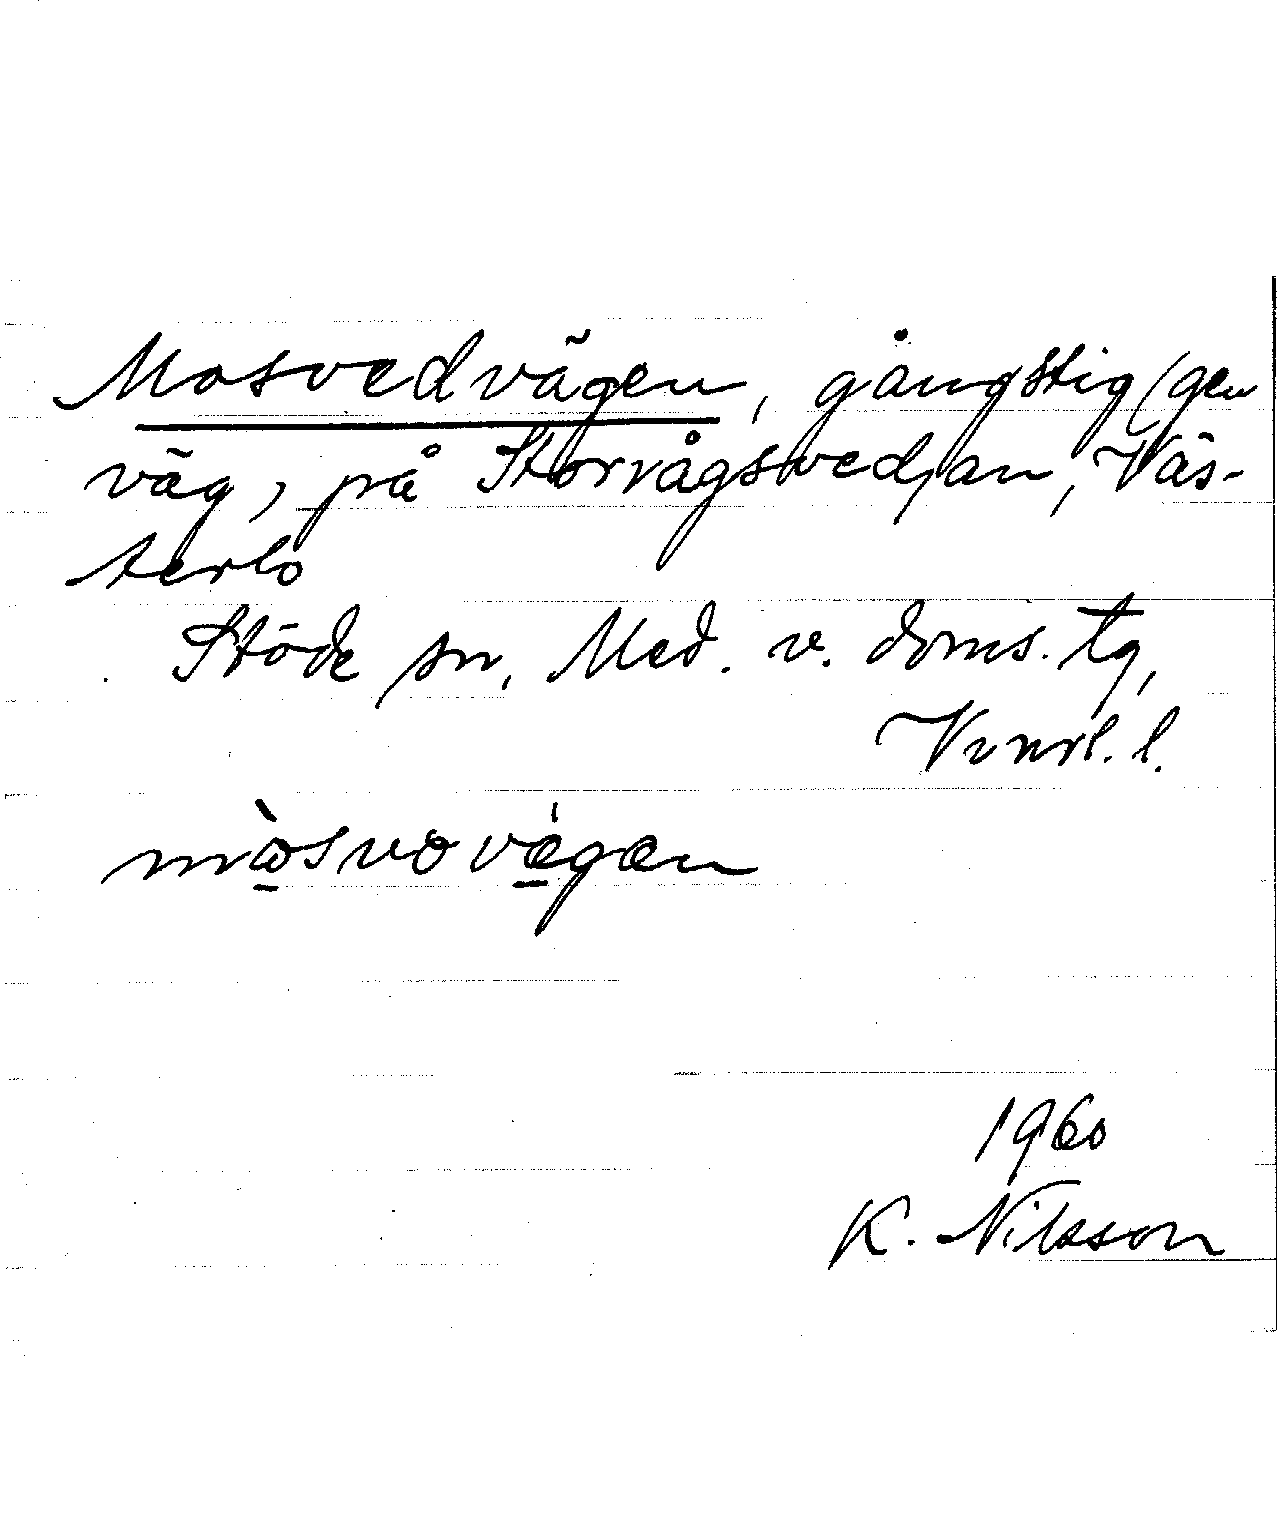 Mosvedvägen, gångstig (gen
väg), på Storvågsvedjan, Väs-
terlo
Stöde sn, Med. v. doms. tg,
Vnrl. l.
mòsvövägæn
1960
K. Nilsson